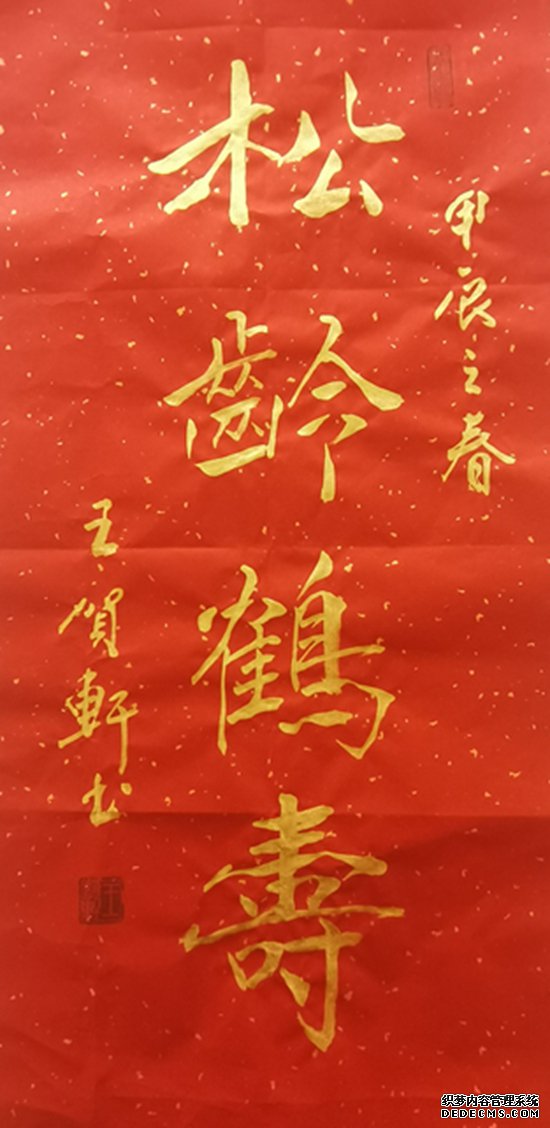 甲辰之春
松齡鶴壽
王賀軒书
织梦内容管理系统
DEDECMS.COM